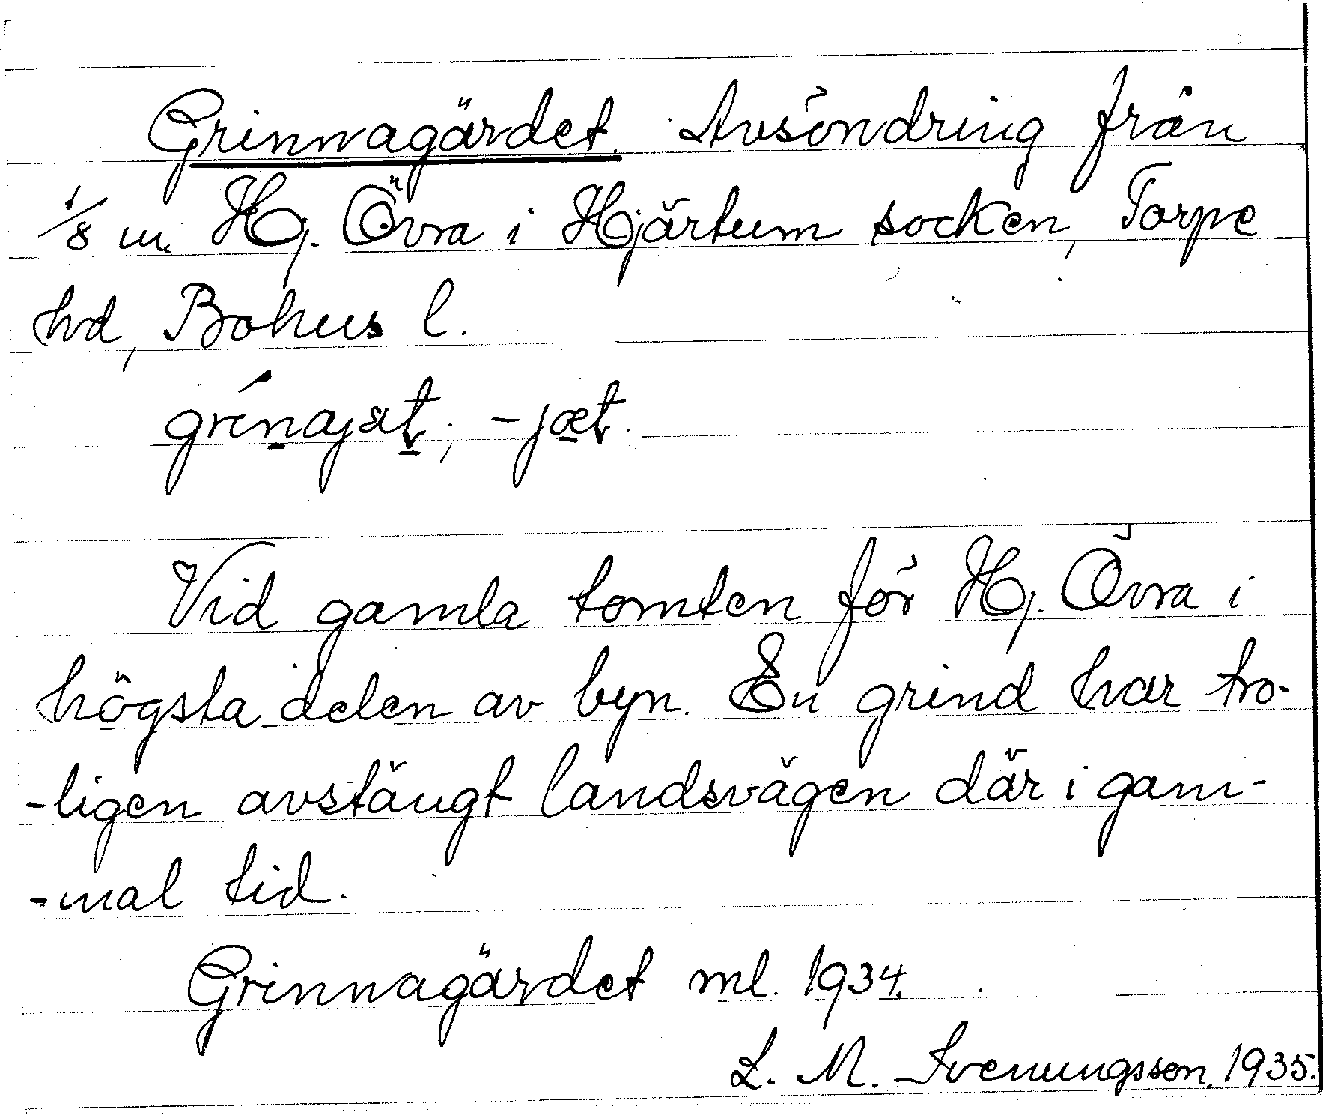 Grinnagärdet. Avsöndring från
1/8 m. Hj. Övra i Hjärtum socken, Torpe
hd, Bohus l.
-jæt.
Vid gamla tomten för Hj. Övra i
högsta delen av byn. En grind har tro-
-ligen avstängt landsvägen där i gam-
-mal tid.
Grinnagärdet ml. 1934.
L. M. Svenungsson. 1935.